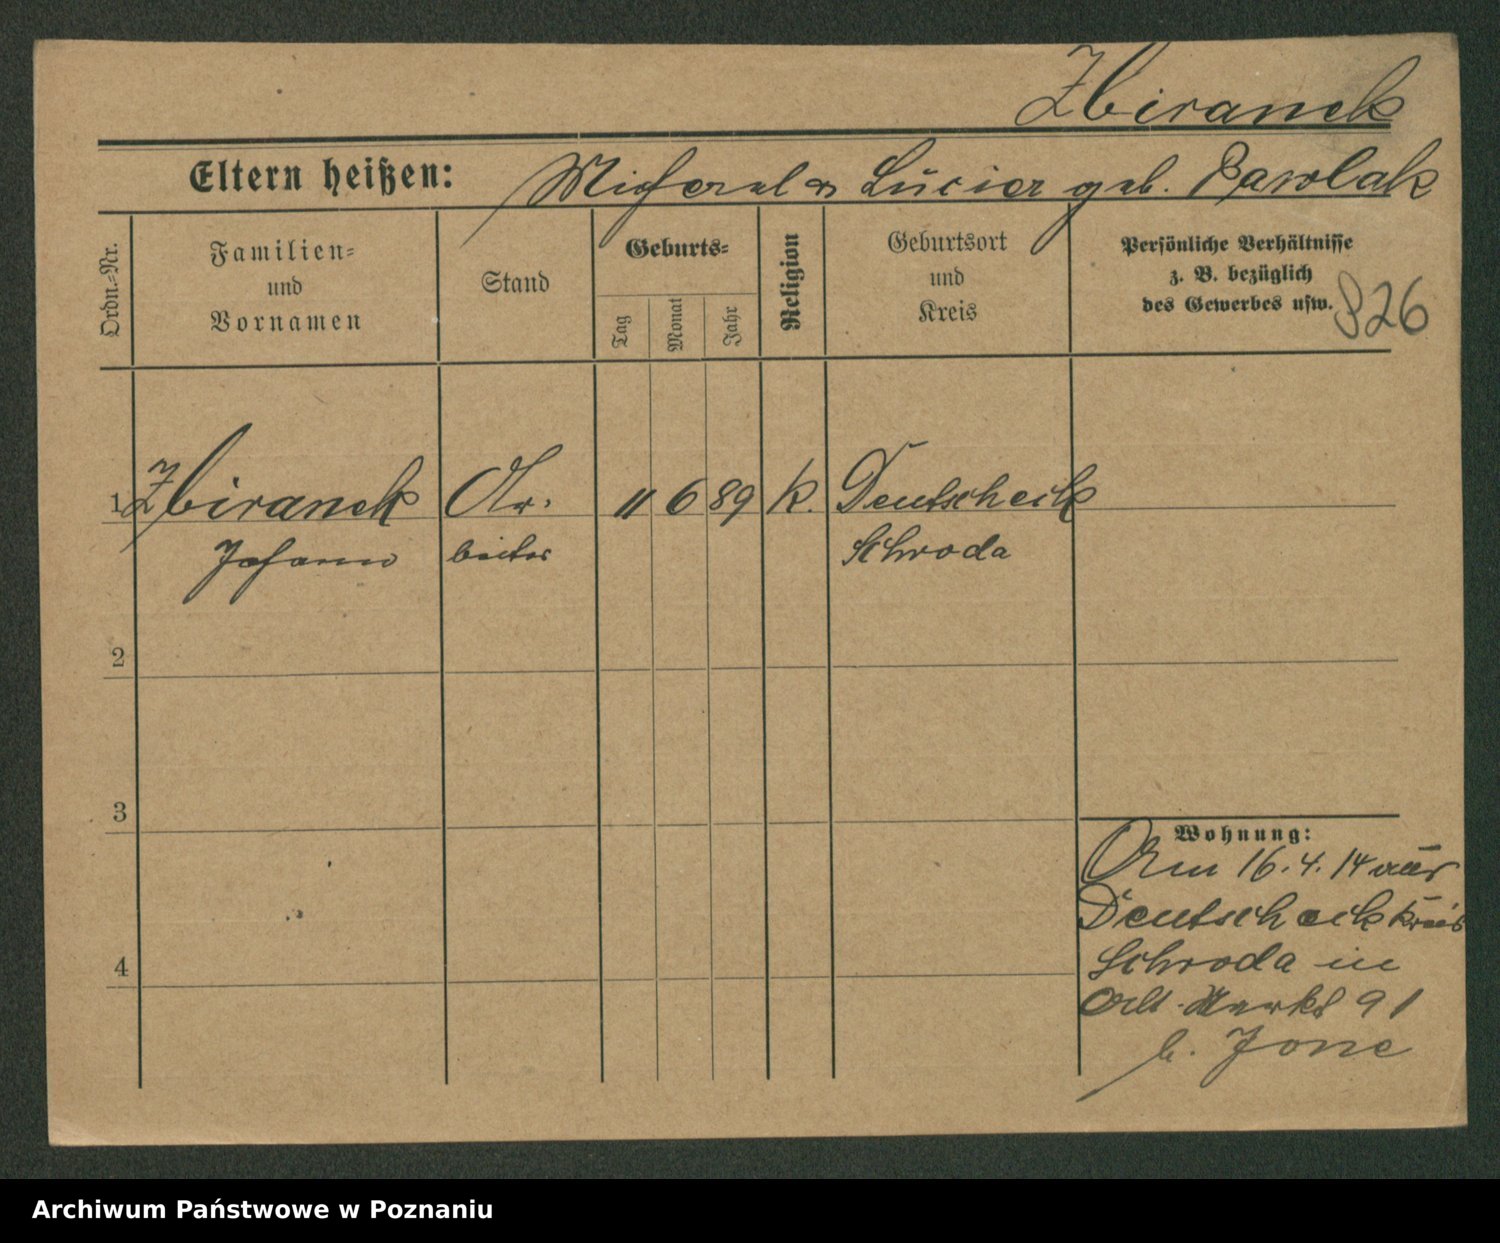 Zbiranek
Eltern heißen: Michael u Lucier geb. Pawlak
Ordn.=Nr.
Familien=
und
Vornamen
Stand
Geburts=
Tag
Monat
Jahr
Religion
Geburtsort
und
Kreis
Persönliche Verhältnisse
z. B. bezüglich
des Gewerbes usw.
826
1 Zbiranek Ar. 11 6 89 k. Deutscheck
Johann beiter Schroda
2
3
4
Wohnung:
Am 16.4.14 aus
Deutscheck Kreis
Schroda in
Alt. Markt 91
b. Jone
Archiwum Państwowe w Poznaniu